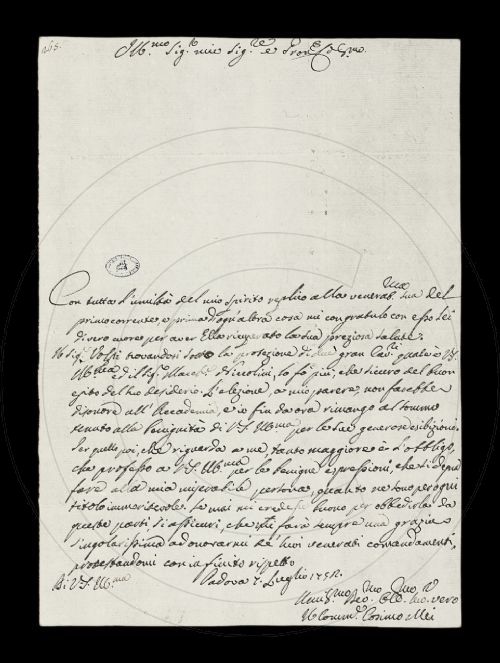 265.
Ill.mo Sig.r mio Sig.re e Pron.e Col.mo
Con tutta l'umiltà del mio spirito replico alla venerat.ma sua del
primo corrente, e prima d'ogn'altra cosa mi congratulo con esso lei
di vero cuore per aver Ella ricuperato la sua preziosa salute.
Il Sig.r Volpi trovandosi sotto la protezione di due gran Cav.ri quale è V.S.
Ill.ma ed il Sig.r March.e Ercolini, lo fa più, che sicuro del buon
esito del suo desiderio. L'elezione, a mio parere, non farebbe
disonore all'Accademia, e io fin da ora rimango al sommo
tenuto alla benignità di V.S. Ill.ma per le sue generose esibizioni.
Per quello poi, che riguarda a me tanto maggiore è l'obbligo,
che professo a V.S. Ill.ma per le benigne espressioni, che si degna
fare alla mia miserabile persona, quanto ne sono per ogni
titolo immeritevole. Se mai mi credesse buono per obbedirla da
queste parti, si assicuri, che mi farà sempre una grazia
singolarissima ad onorarmi de' suoi venerati comandamenti,
protestandomi con infinito rispetto
Di V.S. Ill.ma Padova 7. Luglio 1752.
Umil.mo Dev.mo Obb.mo Se. vero
Cosimo Mei